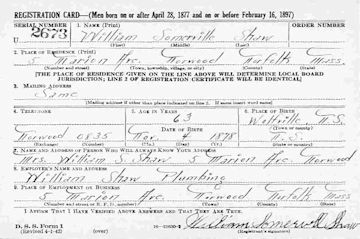 REGISTRATION CARD—(Men born on or after April 28, 1877 and on or before February 16, 1897)
SERIAL NUMBER 1. NAME (Print) ORDER NUMBER
U 2673 William Somerville Shaw
(First) (Middle) (Last)
2. PLACE OF RESIDENCE (Print)
5 Marion Ave. Norwood Norfolk Mass.
(Number and street) (Town, township, village, or city) (County) (State)
[THE PLACE OF RESIDENCE GIVEN ON THE LINE ABOVE WILL DETERMINE LOCAL BOARD
JURISDICTION; LINE 2 OF REGISTRATION CERTIFICATE WILL BE IDENTICAL]
3. MAILING ADDRESS
Same
[Mailing address if other than place indicated on line 2. If same insert word same]
4. TELEPHONE 5. AGE IN YEARS 6. PLACE OF BIRTH
63
DATE OF BIRTH (Town or county)
Norwood 0835 4 1878 N.S.
(Exchange) (Number) (Mo.) (Day) (Yr.) (State or country)
7. NAME AND ADDRESS OF PERSON WHO WILL ALWAYS KNOW YOUR ADDRESS
Mrs. William S. Shaw 5 Marion Ave. Norwood
8. EMPLOYER'S NAME AND ADDRESS
William Shaw Plumbing
9. PLACE OF EMPLOYMENT OR BUSINESS
5 Marion Ave. Norwood Norfolk Mass
(Number and street or R. F. D. number) (Town) (County) (State)
I AFFIRM THAT I HAVE VERIFIED ABOVE ANSWERS AND THAT THEY ARE TRUE.
D. S. S. Form 1 William Somervill Shaw
(Revised 4-1-42) (over)